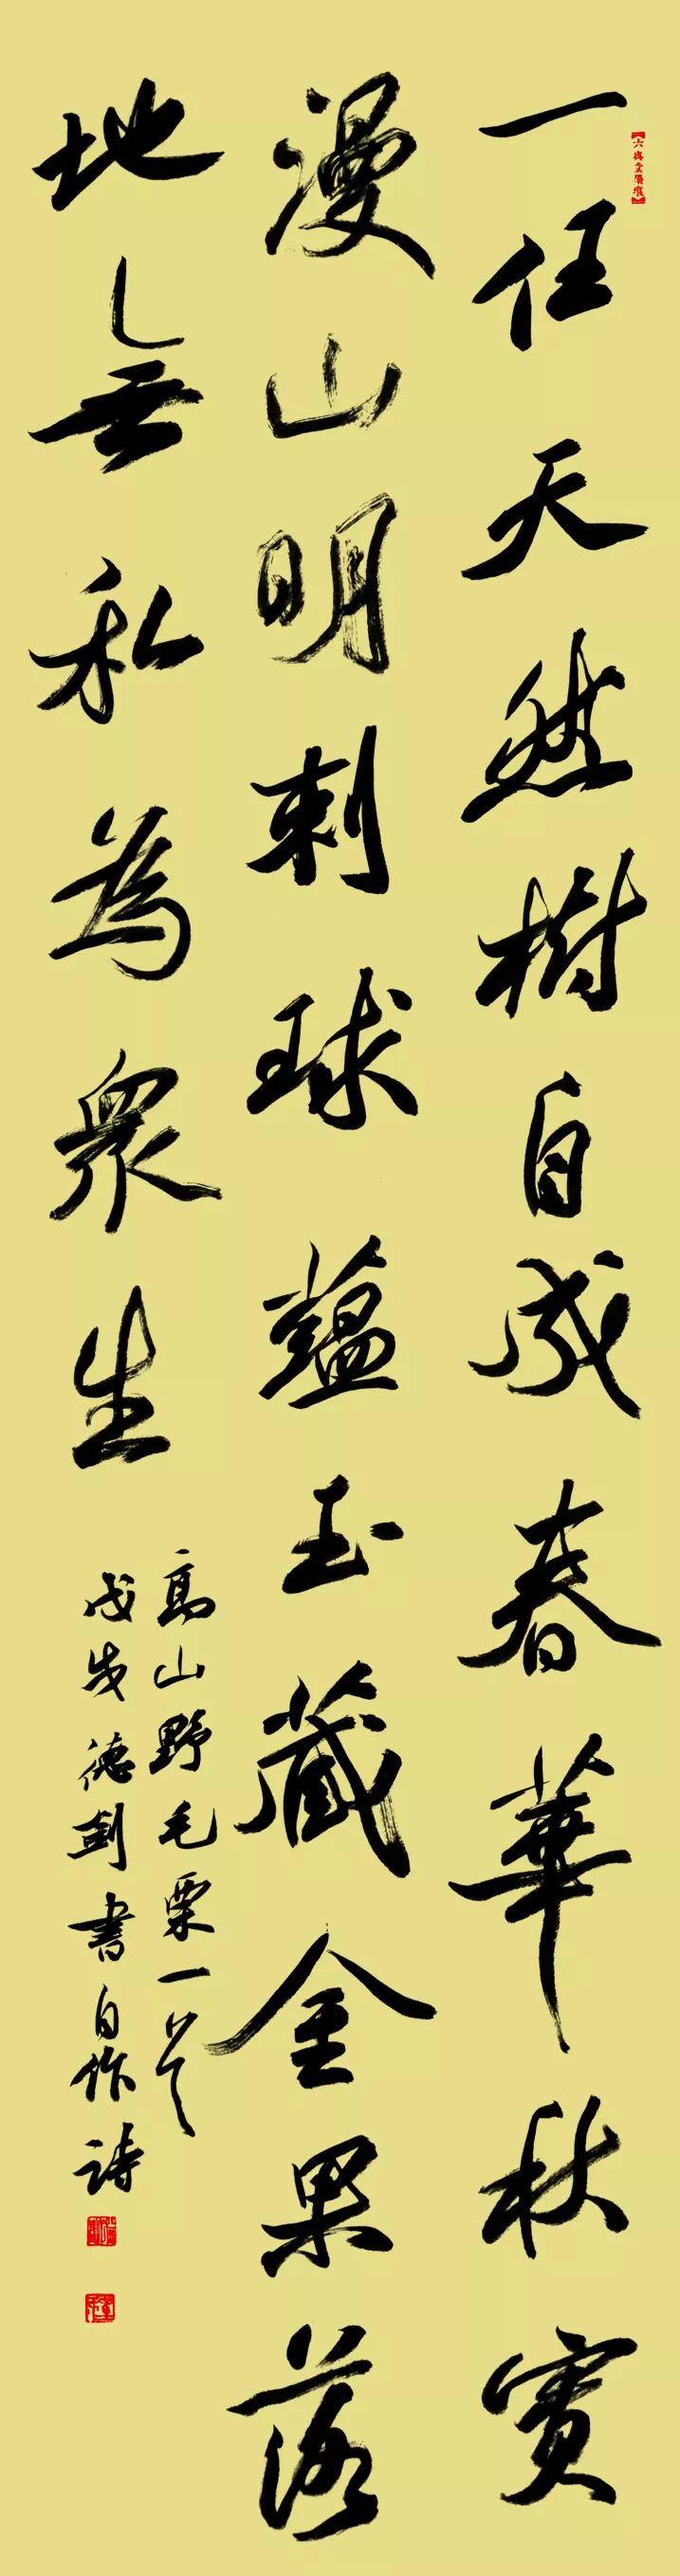 【六典堂墨痕】
一任天然樹自成春華秋實
漫山明刺球蘊玉藏金果落
地無私為衆生
高山野毛栗一首
戊戌德剑書自作詩